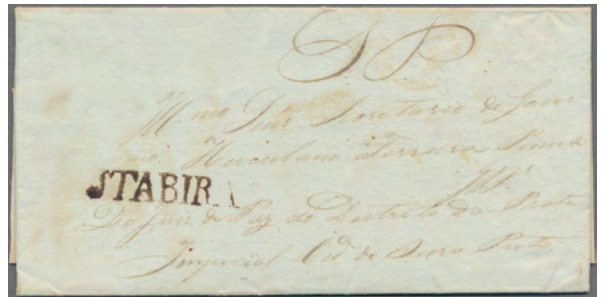 S P
Illmo Senr Secretario do Gover
no Herculano Ferreira Penna
STABIRA
Do Juiz de Paz do Destricto da Prata
Imperial Cide de Ouro Preto